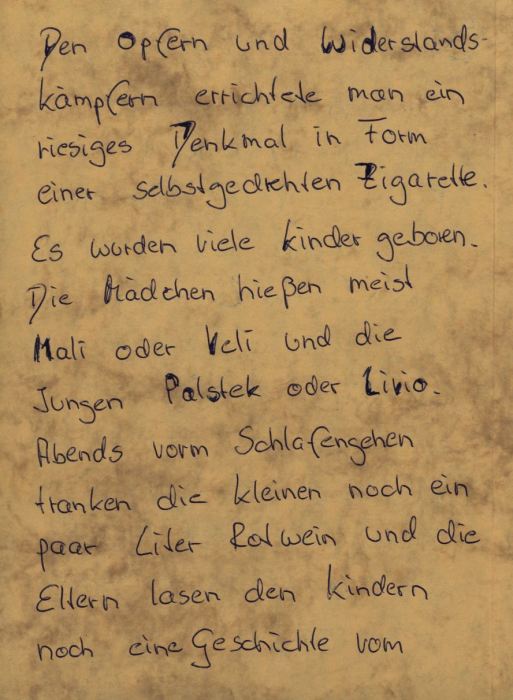 Den Opfern und Widerstands-
kämpfern errichtete man ein
riesiges Denkmal in Form
einer selbstgedrehten Zigarette.
Es wurden viele kinder geboren.
Die Mädchen hießen meist
Mali oder Veli und die
Jungen Palstek oder Livio.
Abends vorm Schlafengehen
tranken die kleinen noch ein
paar Liter Rotwein und die
Eltern lasen den kindern
noch eine Geschichte vom